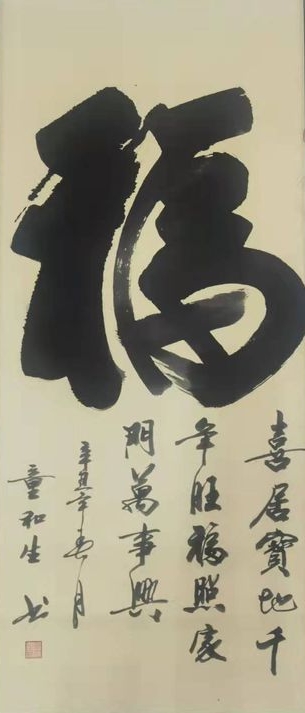 福
喜居寶地千
年旺福照家
門萬事興
辛丑年春月
童和生書